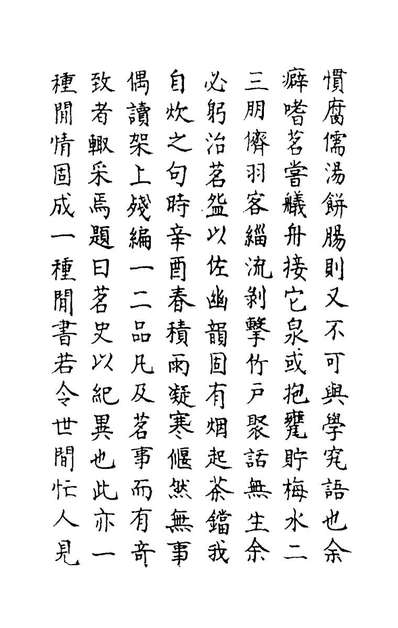 慣腐儒湯餅腸則又不可與學究語也余
癖嗜茗嘗艤舟接它泉或抱甕貯梅水二
三朋儕羽客緇流剝擊竹戶聚話無生余
必躬治茗盌以佐幽韻固有烟起茶鐺我
自炊之句時辛酉春積雨凝寒偃然無事
偶讀架上殘編一二品凡及茗事而有奇
致者輙采焉題曰茗史以紀異也此亦一
種閒情固成一種閒書若令世間忙人見